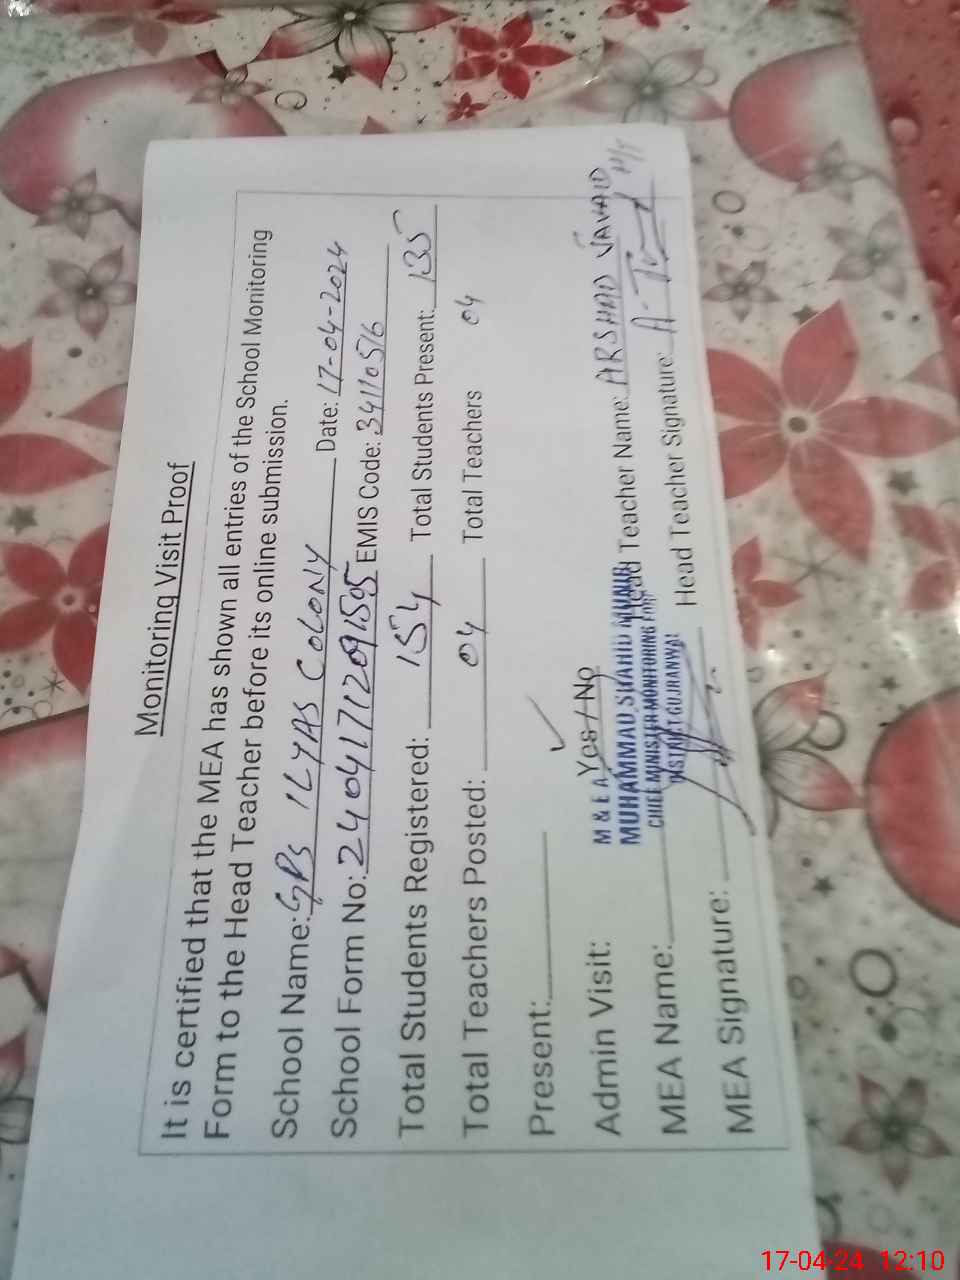 Monitoring Visit Proof
It is certified that the MEA has shown all entries of the School Monitoring
Form to the Head Teacher before its online submission.
School Name: GPS ILYAS COLONY Date: 17-04-2024
School Form No: 24041712091595 EMIS Code: 34110516
Total Students Registered: 154 Total Students Present: 135
Total Teachers Posted: 04 Total Teachers 04
Present: ✓
Admin Visit: Yes / No
M & E A
MUHAMMAD SHAHID MUNIR
CHIEF MINISTER MONITORING FORCE
DISTRICT GUJRANWAL
MEA Name: Head Teacher Name: ARSHAD JAVAID
MEA Signature: Head Teacher Signature:
17-04-24 12:10